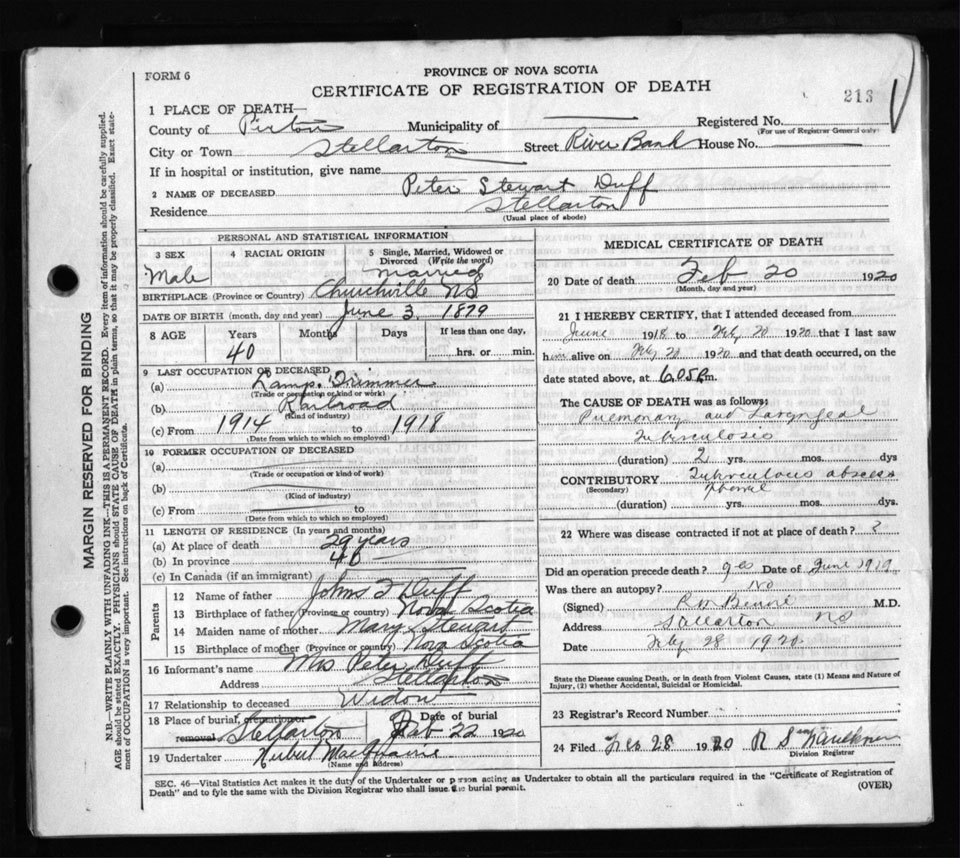 FORM 6
PROVINCE OF NOVA SCOTIA
CERTIFICATE OF REGISTRATION OF DEATH
213
1 PLACE OF DEATH—
County of Pictou Municipality of Registered No.
(For use of Registrar General only)
City or Town Stellarton Street River Bank House No.
If in hospital or institution, give name
2 NAME OF DECEASED Peter Stewart Duff
Residence Stellarton
(Usual place of abode)
PERSONAL AND STATISTICAL INFORMATION
3 SEX Male
4 RACIAL ORIGIN
5 Single, Married, Widowed or Divorced (Write the word) Married
BIRTHPLACE (Province or Country) Churchville NS
DATE OF BIRTH (month, day and year) June 3, 1879
8 AGE Years Months Days If less than one day,
40 hrs. or min.
9 LAST OCCUPATION OF DECEASED
(a) Lamp Trimmer
(Trade or occupation or kind or work)
(b) Railroad
(Kind of industry)
(c) From 1914 to 1918
(Date from which to which so employed)
10 FORMER OCCUPATION OF DECEASED
(a)
(Trade or occupation or kind of work)
(b)
(Kind of industry)
(c) From to
(Date from which to which so employed)
11 LENGTH OF RESIDENCE (In years and months)
(a) At place of death 29 years
(b) In province 40
(c) In Canada (if an immigrant)
Parents
12 Name of father Duff
13 Birthplace of father (Province or country) Nova Scotia
14 Maiden name of mother Mary Stewart
15 Birthplace of mother (Province or country) Nova Scotia
16 Informant's name Mrs Peter Duff
Address Stellarton
17 Relationship to deceased Widow
18 Place of burial, cremation or removal Stellarton Date of burial Feb 22 1920
19 Undertaker
(Name and address)
MEDICAL CERTIFICATE OF DEATH
20 Date of death Feb 20 1920
(Month, day and year)
21 I HEREBY CERTIFY, that I attended deceased from
June 1918 to Feby 20 1920 that I last saw
him alive on Feby 20 1920 and that death occurred, on the
date stated above, at 6.05 P.m.
The CAUSE OF DEATH was as follows:
Pulmonary and Laryngeal
Tuberculosis
(duration) 2 yrs. mos. dys
CONTRIBUTORY Tuberculous abscess
(Secondary)
(duration) yrs. mos. dys.
22 Where was disease contracted if not at place of death? ?
Did an operation precede death? yes Date of June 1919
Was there an autopsy? No
(Signed) M.D.
Address Stellarton NS
Date Feby 28 1920
State the Disease causing Death, or in death from Violent Causes, state (1) Means and Nature of
Injury, (2) whether Accidental, Suicidal or Homicidal.
23 Registrar's Record Number
24 Filed Feb 28 1920
Division Registrar
SEC. 46—Vital Statistics Act makes it the duty of the Undertaker or person acting as Undertaker to obtain all the particulars required in the "Certificate of Registration of
Death" and to fyle the same with the Division Registrar who shall issue the burial permit.
(OVER)
MARGIN RESERVED FOR BINDING
N.B.—WRITE PLAINLY WITH UNFADING INK—THIS IS A PERMANENT RECORD. Every item of information should be carefully supplied.
AGE should be stated EXACTLY. PHYSICIANS should STATE CAUSE OF DEATH in plain terms, so that it may be properly classified. Exact state-
ment of OCCUPATION is very important. See instructions on back of Certificate.